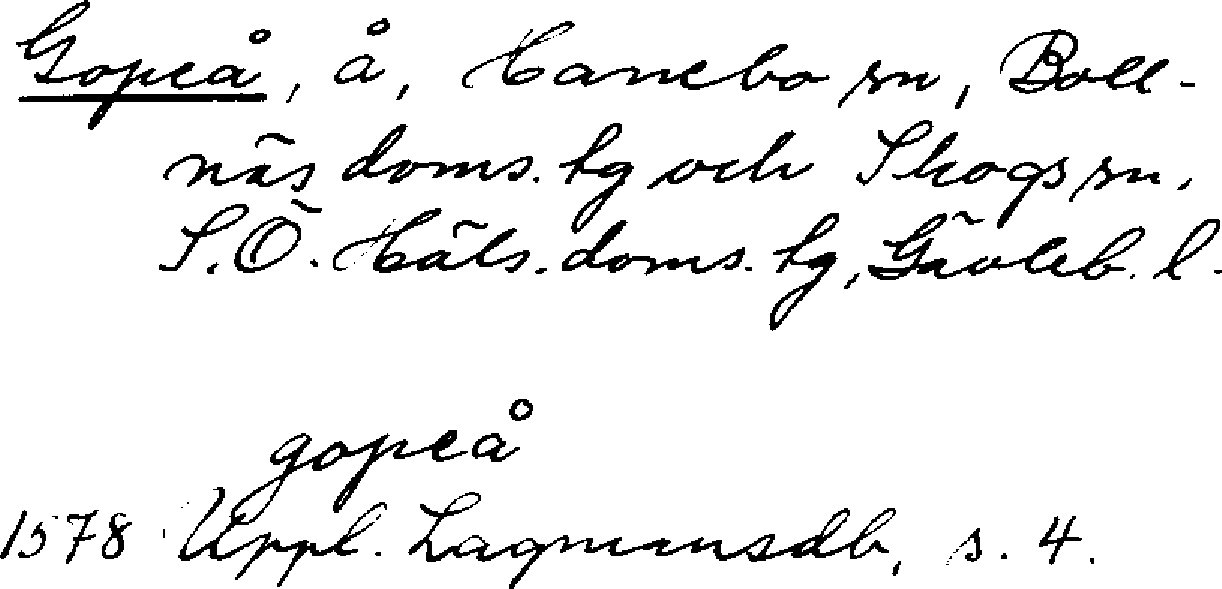 Gopeå, å, Hanebo sn, Boll-
näs doms. tg och Skogs sn,
S.Ö. Häls. doms. tg, Gävleb. l.
gopeå
1578 Uppl. Lagmansdb, s. 4.